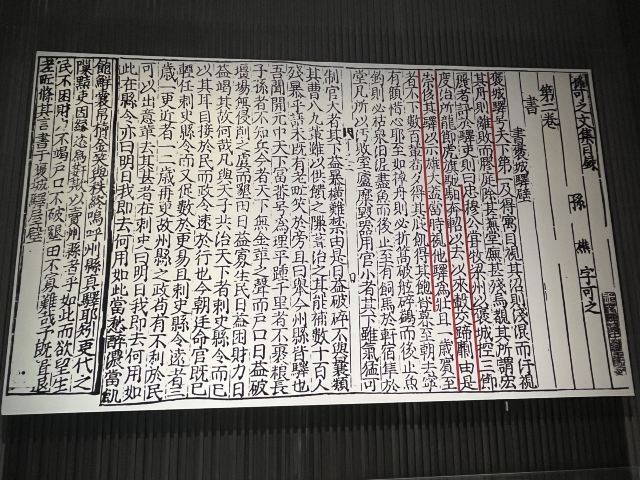 孫可之文集目錄
孫樵字可之
第二卷
書
書褒城驛壁
褒城驛號天下第一及得寓目視其沼則淺混而汙視
其舟則離敗而膠庭除甚蕪堂廡甚殘烏覩其所謂宏
麗者訊於驛吏則曰忠穆公嘗牧梁州以褒城控二節
度治所龍節虎旗馳驛奔軺以去以來轂交蹄劘由是
崇侈其驛以示雄大蓋當時視他驛爲壯且一歲賓至
者不下數百輩苟夕得其庇飢得其飽皆暮至朝去寧
有顧惜心耶至如棹舟則必折篙破舷碎鷁而後止魚
釣則必枯泉汩泥盡魚而後止至有飼馬於軒宿隼於
堂凡所以汚敗室廬糜毀器用官小者其下雖氣猛可
制官大者其下益暴橫難禁由是日益破碎不與曩類
其曹八九輩雖以供饋之隙一二力治之其能補數十百人
殘暴乎語未既有老甿笑於旁且曰舉今州縣皆驛也
吾聞開元中天下富蕃號爲理平踵千里者不裹粮長
子孫者不知兵今者天下無金革之聲而戶口日益破
疆埸無侵削之虞而墾田日益寡生民日益困財力日
益竭其故何哉凡與天子共治天下者刺史縣令而已
以其耳目接於民而政令速於行也今朝廷命官既已
輕任刺史縣令而又促數於更易且刺史縣令遠者三
歲一更近者一二歲再更故州縣之政苟有不利於民
可以出意革去其甚者在刺史曰明日我即去何用如
此在縣令亦曰明日我即去何用如此當愁醉醲當飢
飽鮮囊帛櫝金笑與秩終嗚呼州縣真驛耶矧更代之
隙黠吏因緣恣爲姦欺以賣州縣者乎如此而欲望生
民不困財力不竭戶口不破墾田不寡難哉予既揖退
老甿條其言書于褒城驛屋壁